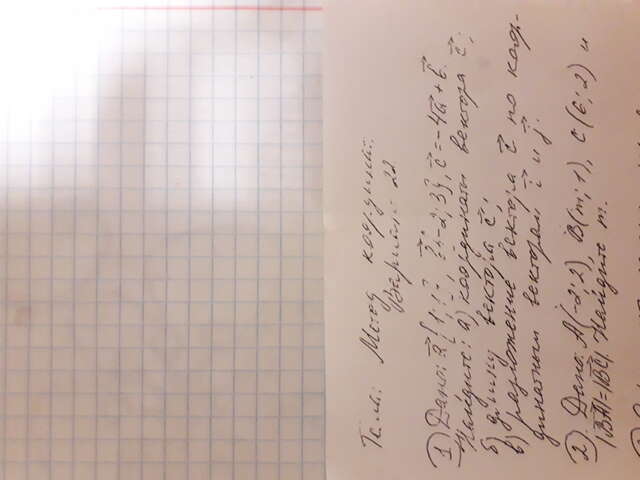 Тема: Метод коор-динат.
Вариант 22
1) Дано: a⃗ {1; b⃗ {-2; 3}, c⃗ = -4a⃗ + b⃗.
Найдите: а) координаты вектора c⃗;
б) длину вектора c⃗;
в) разложение вектора c⃗ по коор-
динатным векторам i⃗ и j⃗.
2) Дано: A(-2; 2), B(m; 1), C(6; 2) и
|BA| = |BC|. Найдите m.